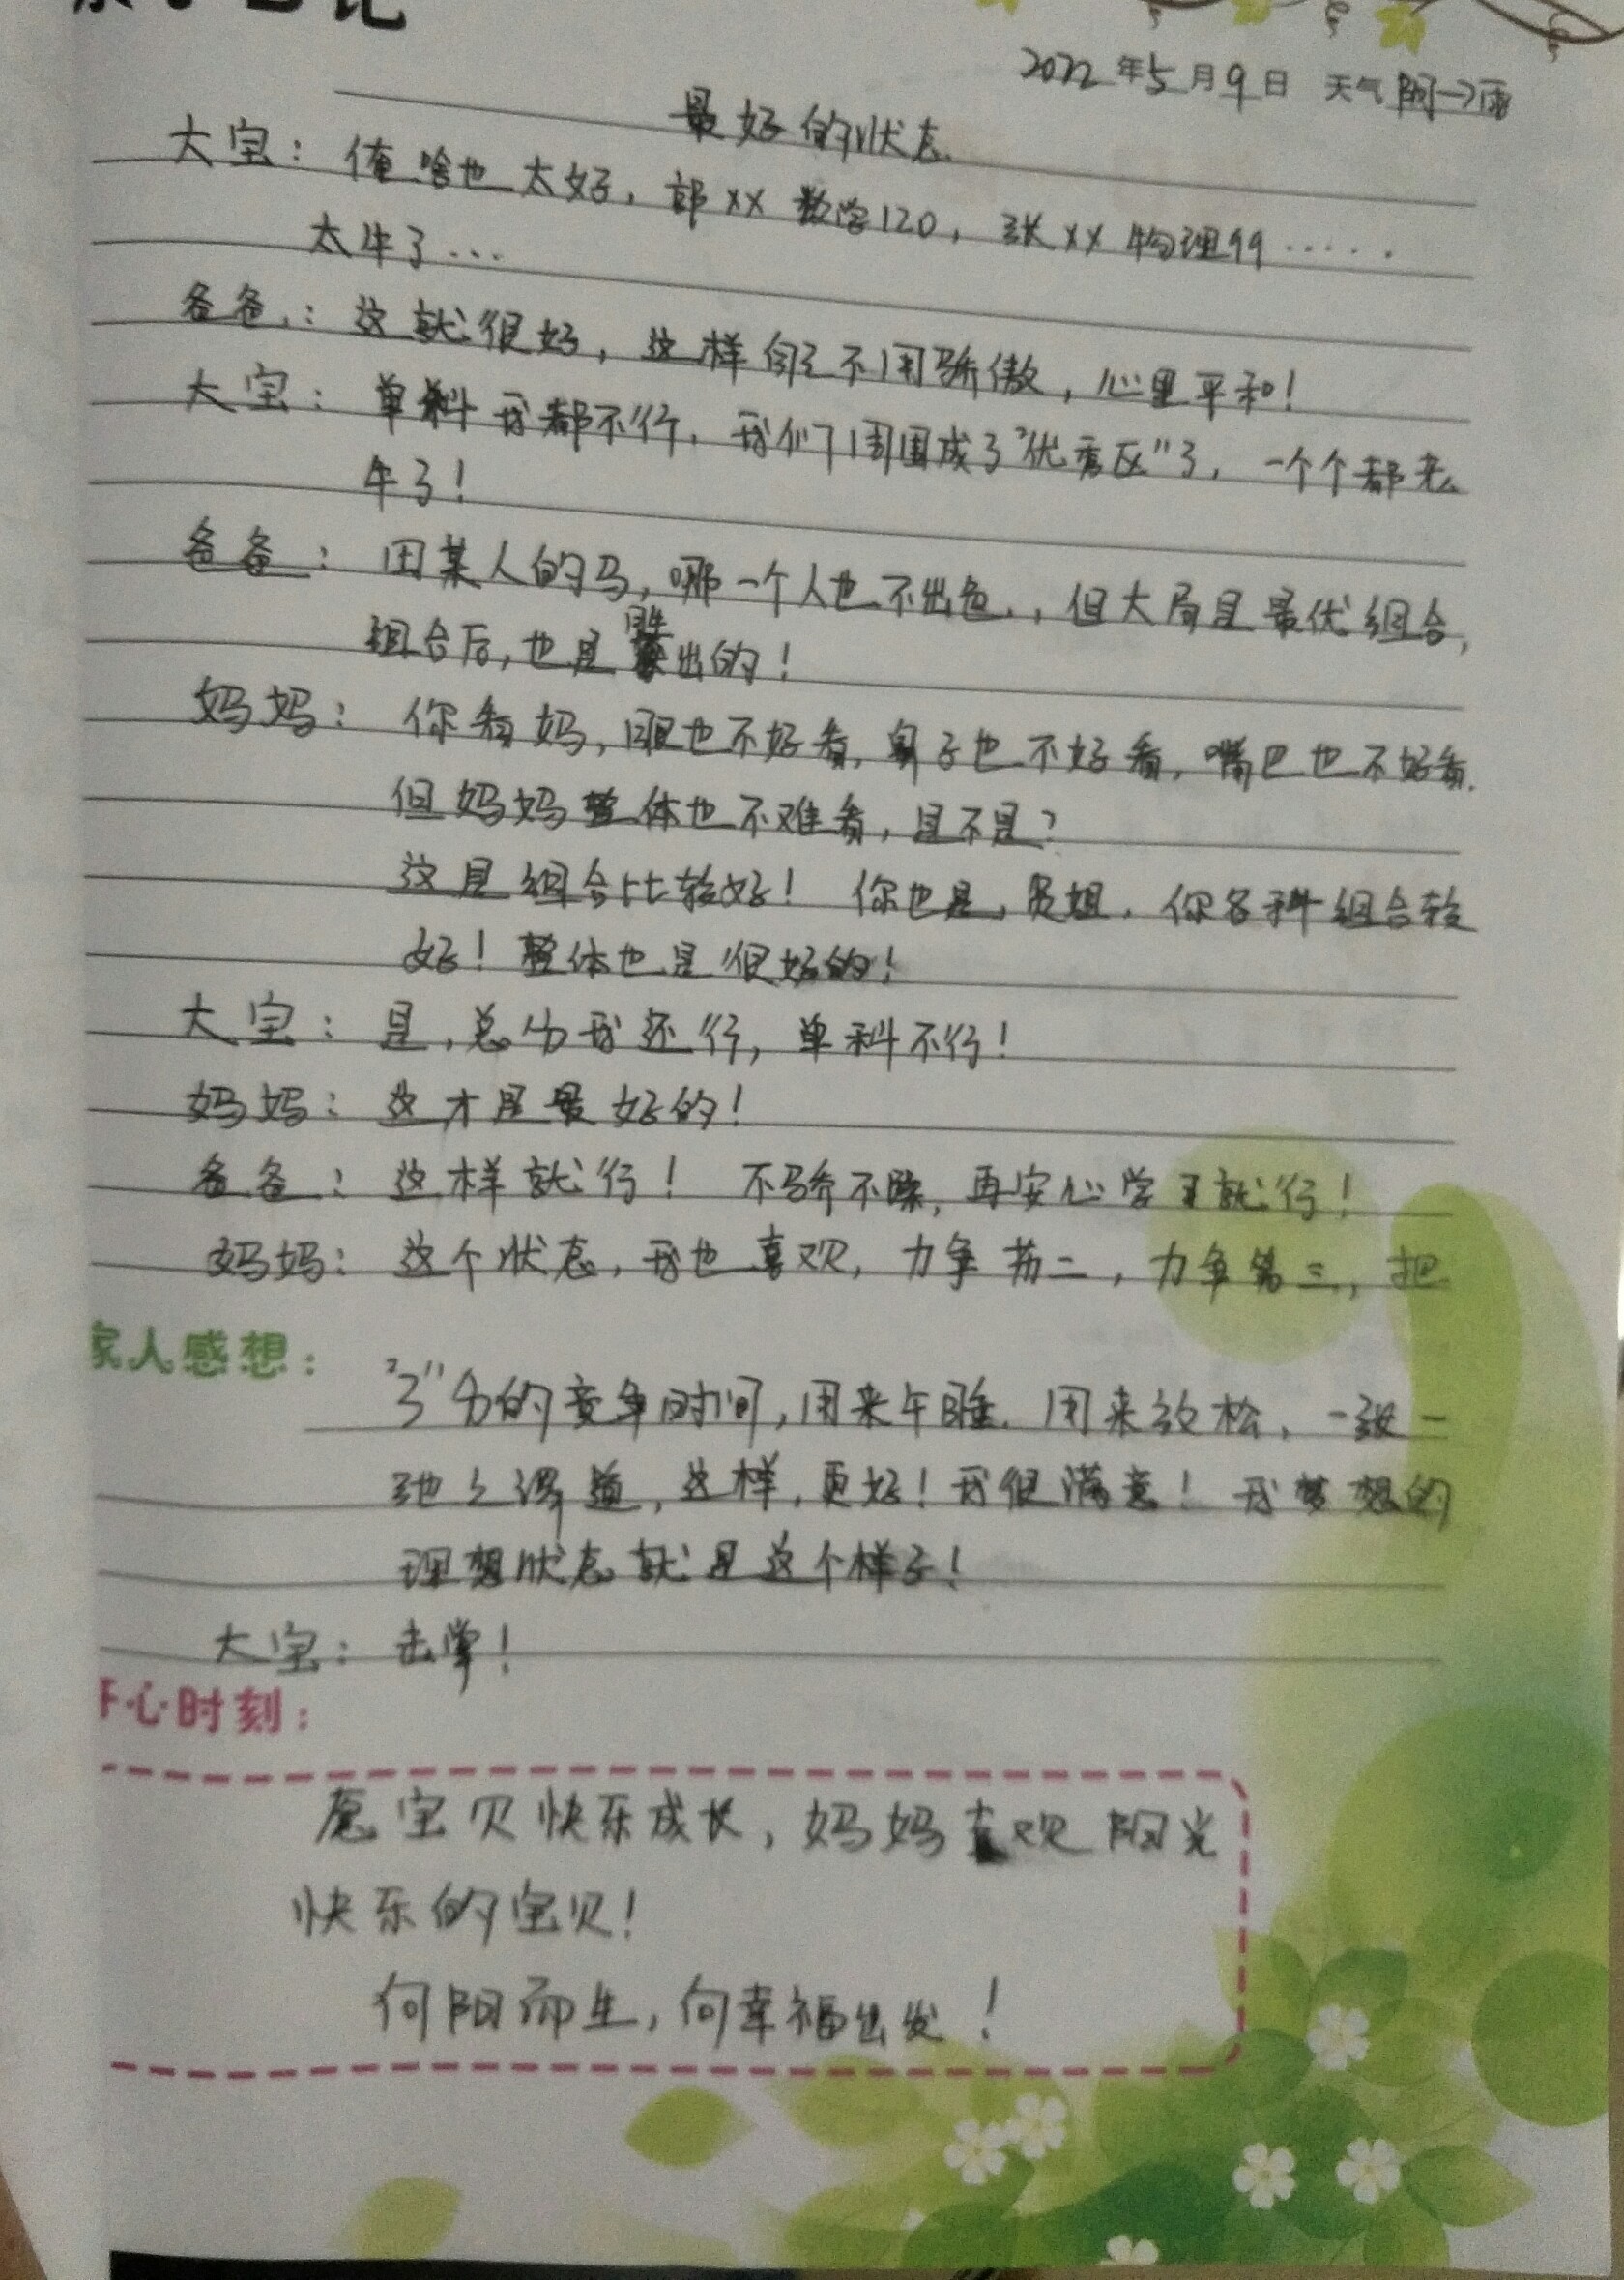 亲子日记
2022年5月9日 天气 阴→雨
最好的状态
大宝：俺啥也太好，郭××数学120，张××物理99……
太牛了…
爸爸：这就很好，这样自己不用骄傲，心里平和！
大宝：单科我都不行，我们周围成了"优秀区"了，一个个都老
牛了！
爸爸：田某人的马，哪一个人也不出色，但大局是最优组合，
组合后，也是胜出的！
妈妈：你看妈，眼也不好看，鼻子也不好看，嘴巴也不好看.
但妈妈整体也不难看，是不是？
这是组合比较好！你也是，姐，你各科组合较
好！整体也是很好的！
大宝：是，总分我还行，单科不行！
妈妈：这才是最好的！
爸爸：这样就行！不骄不躁，再安心学习就行！
妈妈：这个状态，我也喜欢，力争第二，力争第三，把
家人感想：
"3"分的竞争时间，用来午睡.用来放松，一张一
弛之道，这样，更好！我很满意！我梦想的
理想状态就是这个样子！
大宝：击掌！
开心时刻：
愿宝贝快乐成长，妈妈喜欢阳光
快乐的宝贝！
向阳而生，向幸福出发！